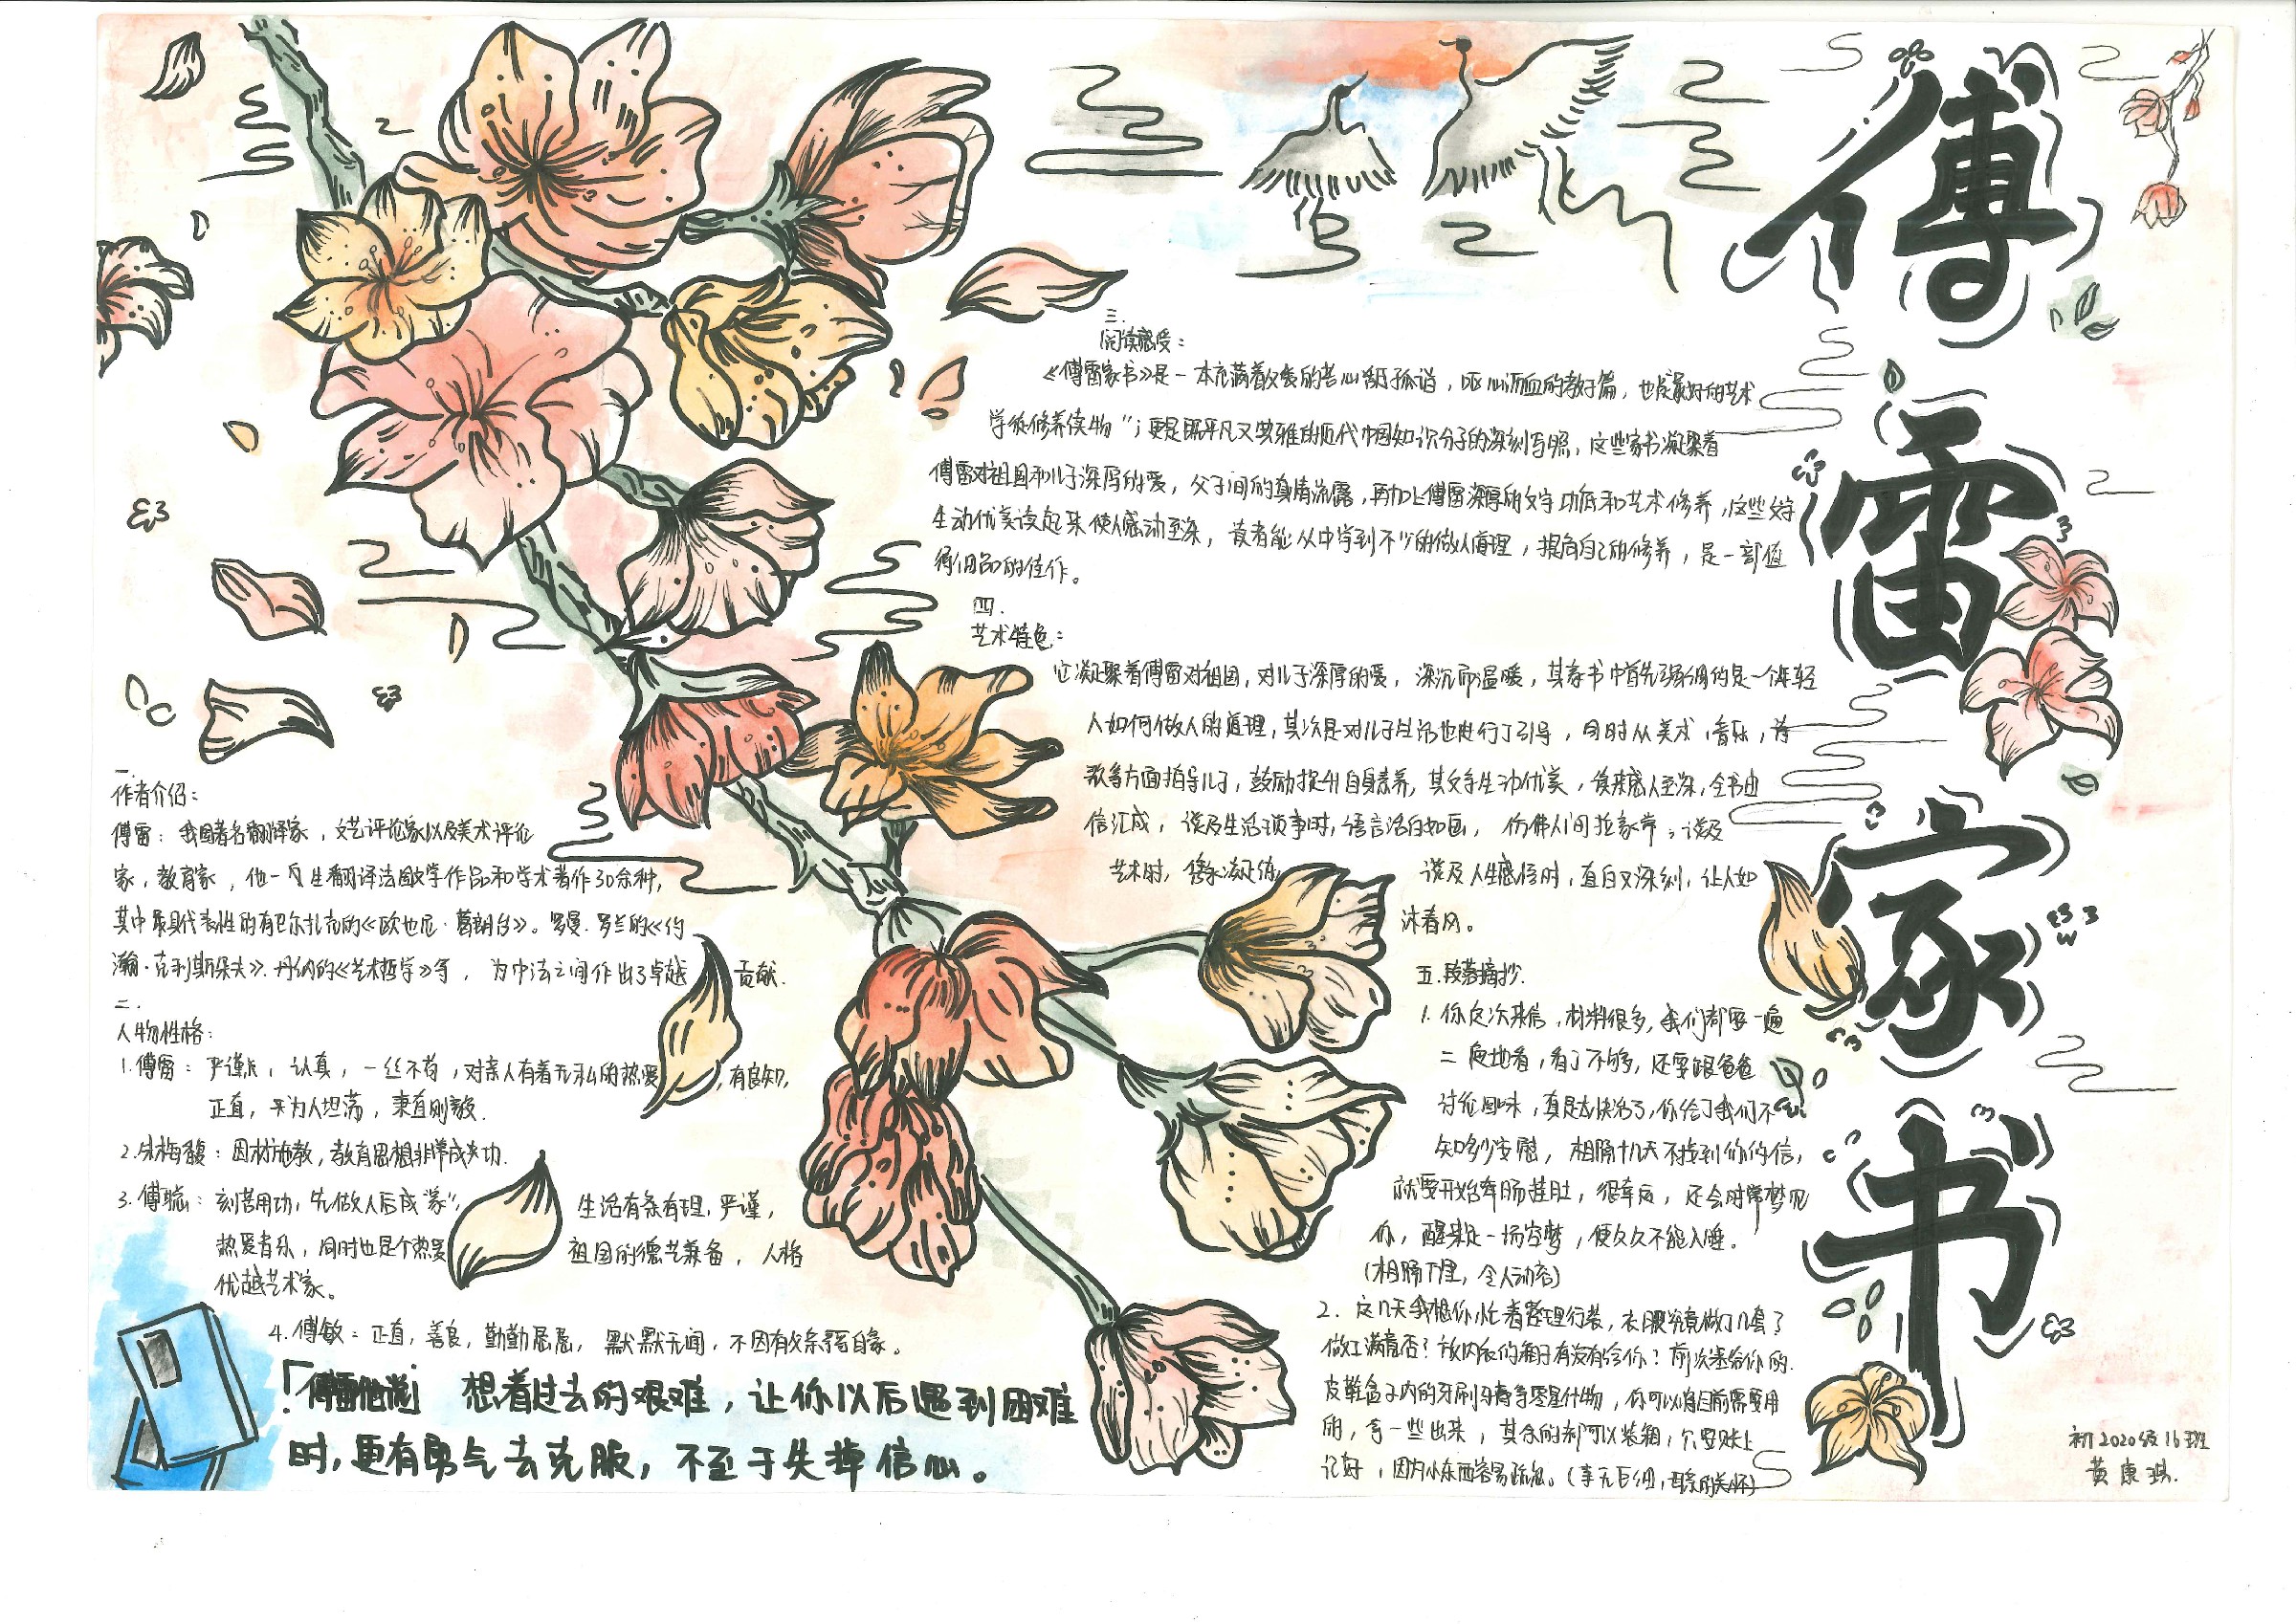 傅雷家书
一.
作者介绍：
傅雷：我国著名翻译家，文艺评论家以及美术评论
家，教育家，他一生翻译法国文学作品和学术著作30余种，
其中最具代表性的有巴尔扎克的《欧也尼·葛朗台》。罗曼·罗兰的《约
翰·克利斯朵夫》.丹纳的《艺术哲学》等，为中法之间作出了卓越贡献.
二.
人物性格：
1.傅雷：严谨，认真，一丝不苟，对亲人有着无私的热爱，有良知，
正直，为人坦荡，秉直刚毅.
2.朱梅馥：因材施教，教育思想非常成功.
3.傅聪：刻苦用功，先做人后成“家”，生活有条有理，严谨，
热爱音乐，同时也是个热爱祖国的德艺兼备，人格
优越艺术家。
4.傅敏：正直，善良，勤勤恳恳，默默无闻，不因有父亲
三.
阅读感受：
《傅雷家书》是一本充满着父爱的苦心孤诣，呕心沥血的教子篇，也是最好的艺术
学徒修养读物”；更是既平凡又典雅的近代中国知识分子的深刻写照，这些家书凝聚着
傅雷对祖国和儿子深厚的爱，父子间的真情流露，再加上傅雷深厚的文字功底和艺术修养，这些文字
生动优美读起来使人感动至深，读者能从中学到不少的做人道理，提高自己的修养，是一部值
得细品的佳作。
四.
艺术特色：
它凝聚着傅雷对祖国，对儿子深厚的爱，深沉而温暖，其家书中首先强调的是一个年轻
人如何做人的道理，其次是对儿子生活也进行了引导，同时从美术，音乐，诗
歌等方面指导儿子，鼓励提升自身素养，其文字生动优美，读来感人至深，全书由
信汇成，谈及生活琐事时，语言活白如画，仿佛人间拉家常；谈及
艺术时，隽永凝练，谈及人生感悟时，直白又深刻，让人如
沐春风。
五.段落摘抄.
1.你这次来信，材料很多，我们都要一遍
二遍地看，看了不够，还要跟爸爸
讨论回味，真是太快活了，你给了我们不
知多少安慰，相隔十几天不接到你的信，
就要开始牵肠挂肚，很牵反，还会时常梦见
你，醒来是一场空梦，便久久不能入睡。
(相隔千里，令人动容)
2.这几天我想你忙着整理行装，衣服究竟做了几套了
做工满意否？放内衣的箱子有没有给你？前次送给你的
皮鞋盒子内的牙刷牙膏等零星什物，你可以将目前需要用
的，拿一些出来，其余的都可以装箱，只要账上
记好，因为小东西容易疏忽。(事无巨细，母亲的关怀)
想着过去的艰难，让你以后遇到困难
时，更有勇气去克服，不至于失掉信心。
初2020级16班
黄康琪.